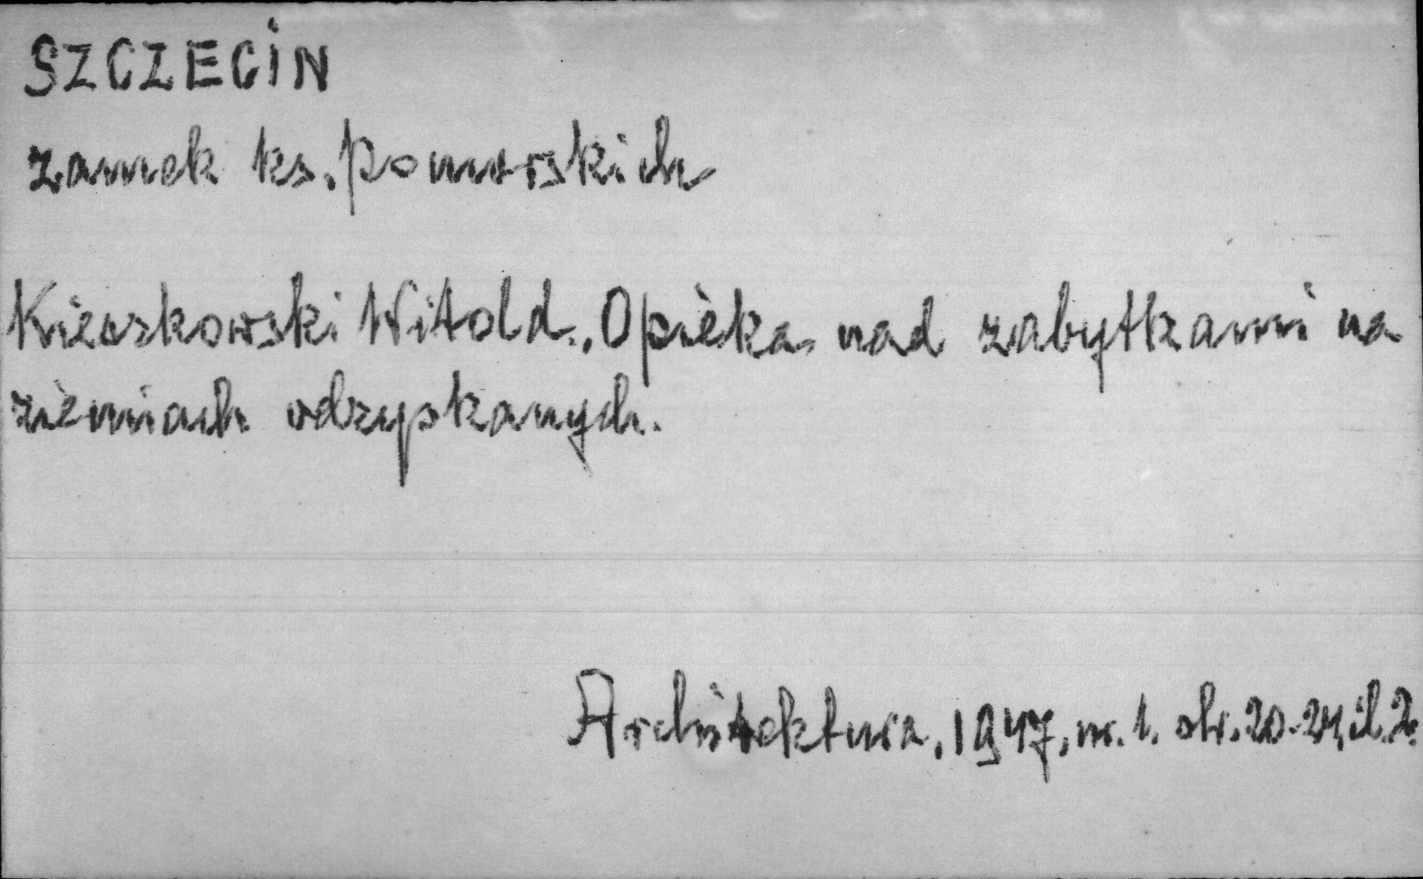 SZCZECIN
zamek ks. pomorskich
Kieszkowski Witold., Opieka nad zabytkami na
ziemiach odzyskanych.
Architektura, 1947, nr. 1. str. 20-24, il. 2.